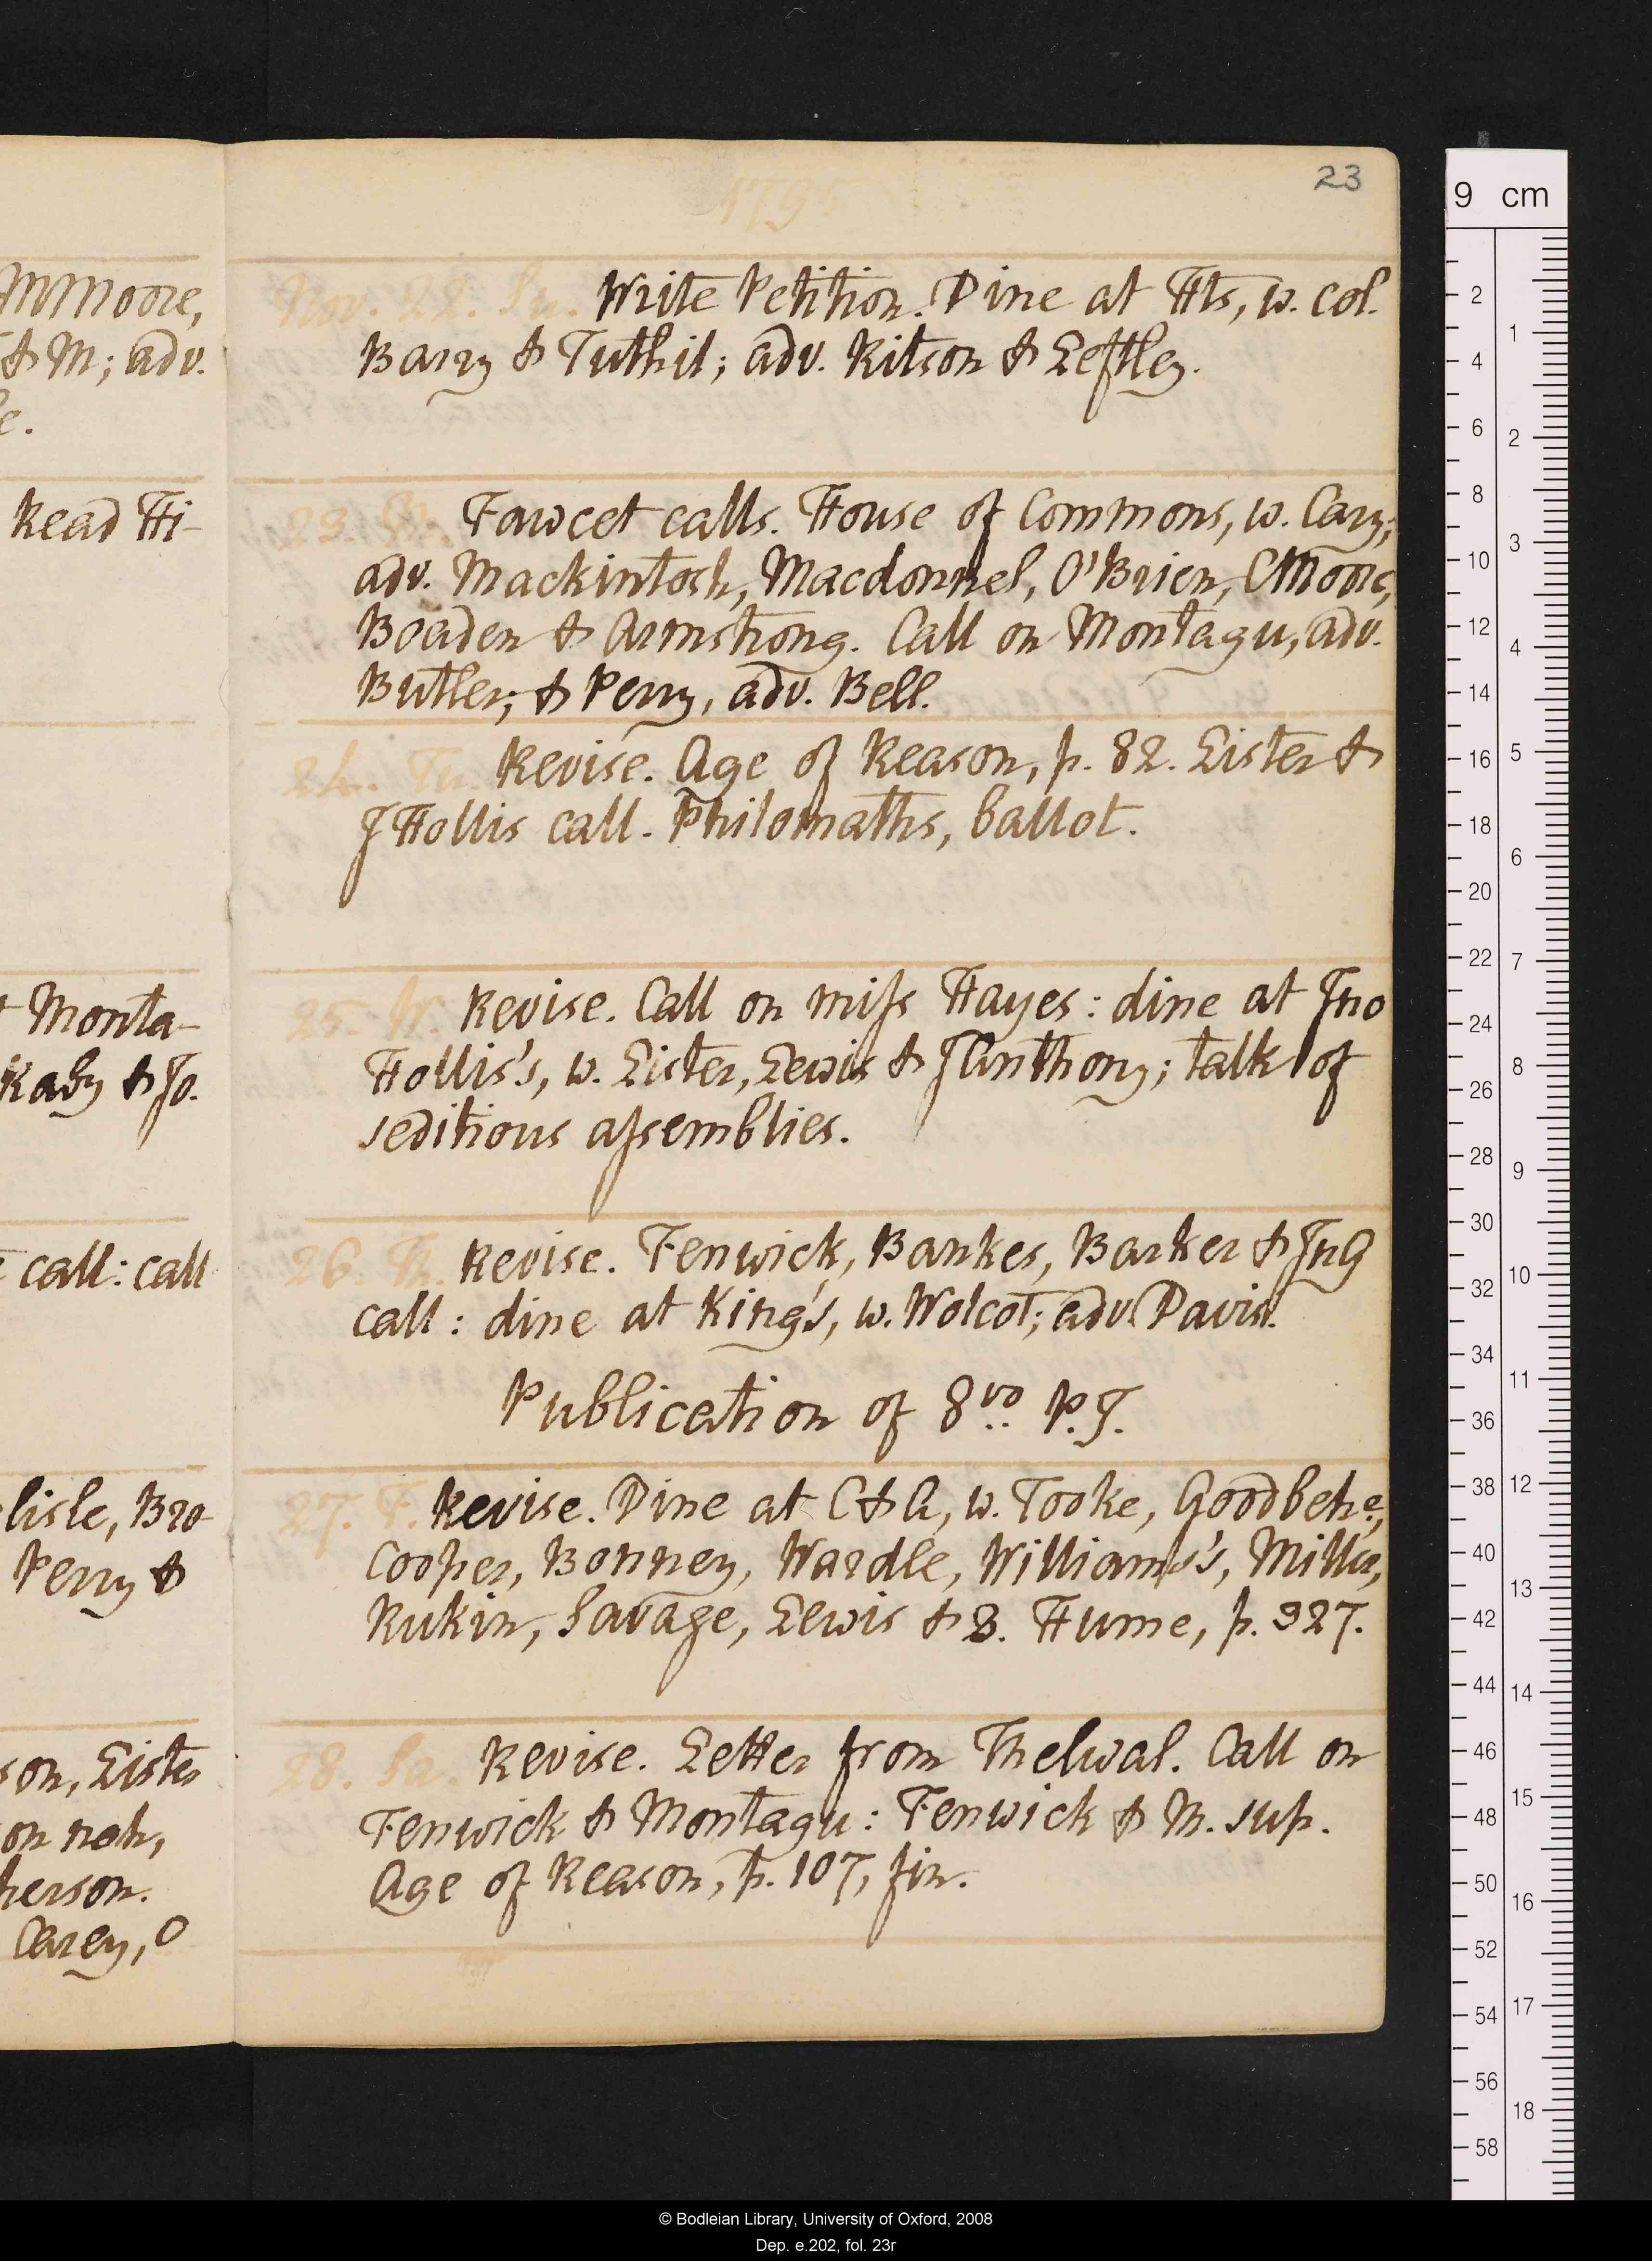 23
1795
MMoore,
& M; adv.
e.
Read Hi-
Monta-
Raby & Jo.
call: call
lisle, Bro-
Perry &
son, Lister
on nah,
herson.
Carey, O
Nov. 22. Su. Write Petition. Dine at Hts, w. col.
Barry & Tuthil; adv. Ritson & Leftley.
23. M. Fawcet calls. House of Commons, w. Cary;
adv. Mackintosh, Macdonnel, O'Brien, CMoore,
Boaden & Armstrong. Call on Montagu, adv.
Butler; & Perry, adv. Bell.
24. Tu. Revise. Age of Reason, p. 82. Lister &
JHollis call. Philomaths, ballot.
25. W. Revise. Call on miss Hayes: dine at Jno
Hollis's, w. Lister, Lewis & JAnthony; talk of
seditious assemblies.
26. Th. Revise. Fenwick, Bankes, Barker & JnG
call: dine at King's, w. Wolcot; adv. Davis.
Publication of 8vo. P.J.
27. F. Revise. Dine at C & A, w. Tooke, Goodbehe,
Cooper, Bonney, Wardle, Williams's, Miller,
Rukin, Savage, Lewis & 3. Hume, p. 327.
28. Sa. Revise. Letter from Thelwal. Call on
Fenwick & Montagu: Fenwick & M. sup.
Age of Reason, p. 107, fin.
9 cm
2
4
6
8
10
12
14
16
18
20
22
24
26
28
30
32
34
36
38
40
42
44
46
48
50
52
54
56
58
1
2
3
4
5
6
7
8
9
10
11
12
13
14
15
16
17
18
© Bodleian Library, University of Oxford, 2008
Dep. e.202, fol. 23r